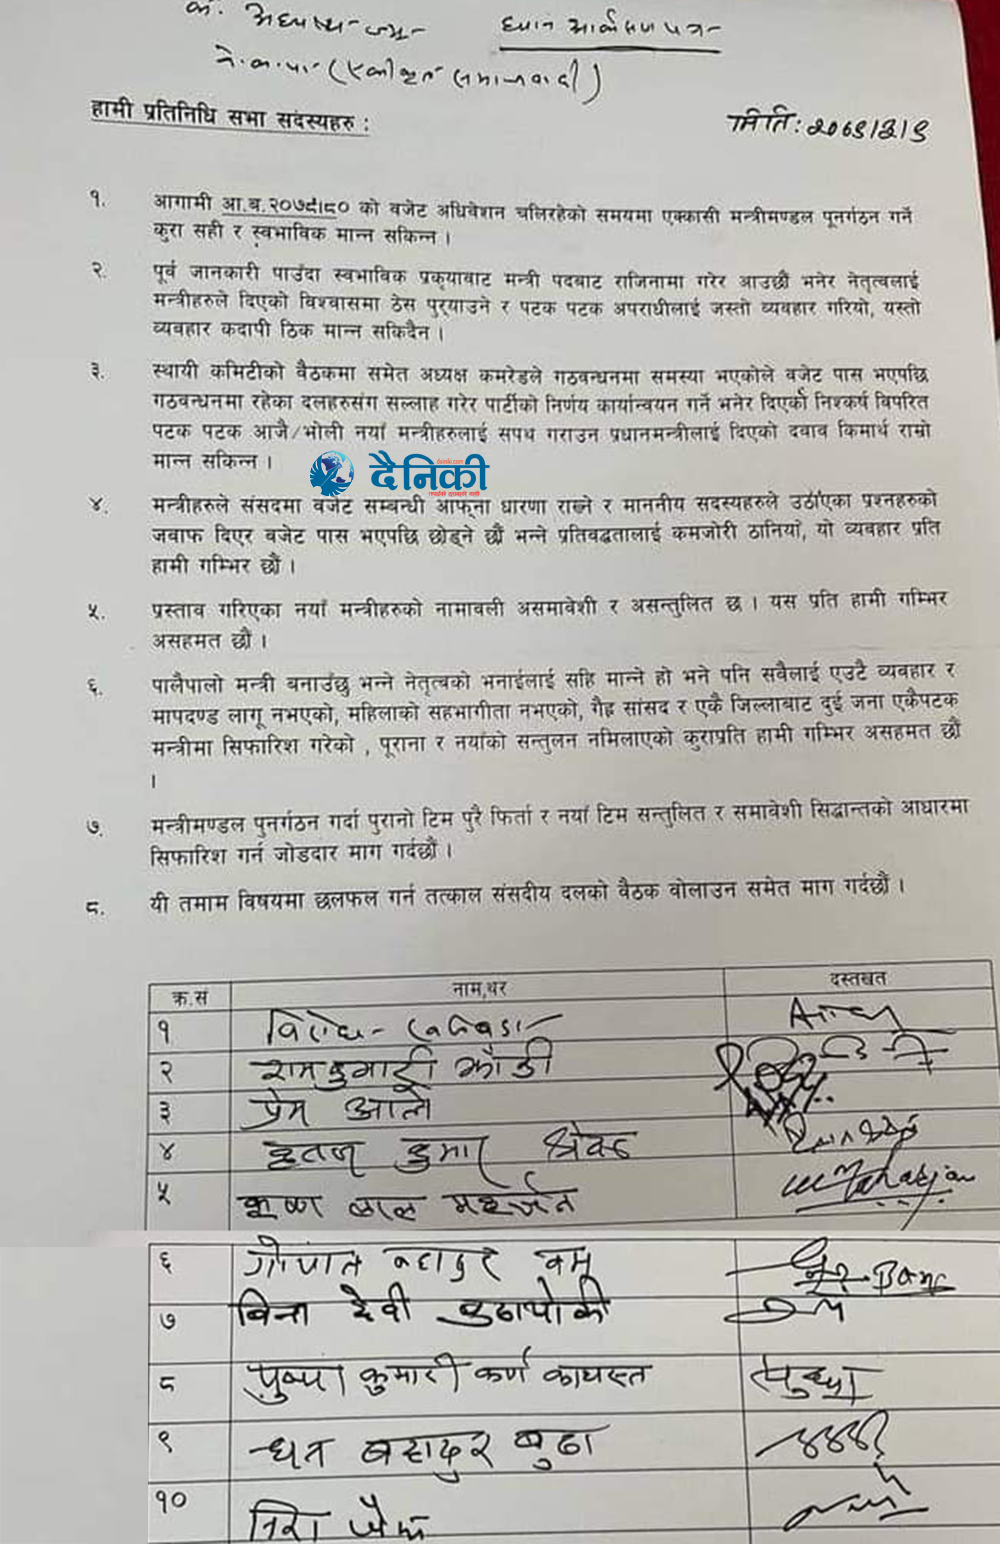 क. अध्यक्ष ज्यू- ध्यान आर्कषण पत्र-
ने.क.पा (एकीकृत समाजवादी)
हामी प्रतिनिधि सभा सदस्यहरु :
मिति: २०७९/३/९
१. आगामी आ.ब.२०७९।८० को वजेट अधिवेशन चलिरहेको समयमा एक्कासी मन्त्रीमण्डल पूनर्गठन गर्ने
कुरा सही र स्वभाविक मान्न सकिन्न ।
२. पूर्व जानकारी पाउँदा स्वभाविक प्रकृयाबाट मन्त्री पदबाट राजिनामा गरेर आउछौं भनेर नेतृत्वलाई
मन्त्रीहरुले दिएको विश्वासमा ठेस पुर्‍याउने र पटक पटक अपराधीलाई जस्तो व्यवहार गरियो, यस्तो
व्यवहार कदापी ठिक मान्न सकिदैन ।
३. स्थायी कमिटीको वैठकमा समेत अध्यक्ष कमरेडले गठवन्धनमा समस्या भएकोले वजेट पास भएपछि
गठवन्धनमा रहेका दलहरुसंग सल्लाह गरेर पार्टीको निर्णय कार्यान्वयन गर्ने भनेर दिएको निश्कर्ष विपरित
पटक पटक आजै/भोली नयाँ मन्त्रीहरुलाई सपथ गराउन प्रधानमन्त्रीलाई दिएको दवाव किमार्थ राम्रो
मान्न सकिन्न ।
दैनिकी
४. मन्त्रीहरुले संसदमा वजेट सम्बन्धी आफ्ना धारणा राख्ने र माननीय सदस्यहरुले उठाएका प्रश्नहरुको
जवाफ दिएर बजेट पास भएपछि छोड्ने छौं भन्ने प्रतिबद्धतालाई कमजोरी ठानियो, यो व्यवहार प्रति
हामी गम्भिर छौं ।
५. प्रस्ताव गरिएका नयाँ मन्त्रीहरुको नामावली असमावेशी र असन्तुलित छ । यस प्रति हामी गम्भिर
असहमत छौं ।
६. पालैपालो मन्त्री बनाउँछु भन्ने नेतृत्वको भनाईलाई सहि मान्ने हो भने पनि सवैलाई एउटै व्यवहार र
मापदण्ड लागू नभएको, महिलाको सहभागीता नभएको, गैह्र सांसद र एकै जिल्लाबाट दुई जना एकैपटक
मन्त्रीमा सिफारिश गरेको , पूराना र नयाँको सन्तुलन नमिलाएको कुराप्रति हामी गम्भिर असहमत छौं
।
७. मन्त्रीमण्डल पुनर्गठन गर्दा पुरानो टिम पुरै फिर्ता र नयाँ टिम सन्तुलित र समावेशी सिद्धान्तको आधारमा
सिफारिश गर्न जोडदार माग गर्दछौं ।
८. यी तमाम विषयमा छलफल गर्न तत्काल संसदीय दलको वैठक वोलाउन समेत माग गर्दछौं ।
क्र.सं नाम,थर दस्तखत
१
२ रामकुमारी झाँक्री
३ प्रेम आले
४ कुमार श्रेष्ठ
५ कृष्ण लाल महर्जन
६ गोपाल बहादुर बम
७ बिना देवी बुढाथोकी
८ पुष्पा कुमारी कर्ण कायस्त
९ धन बहादुर बुढा
१० निरा जैरु